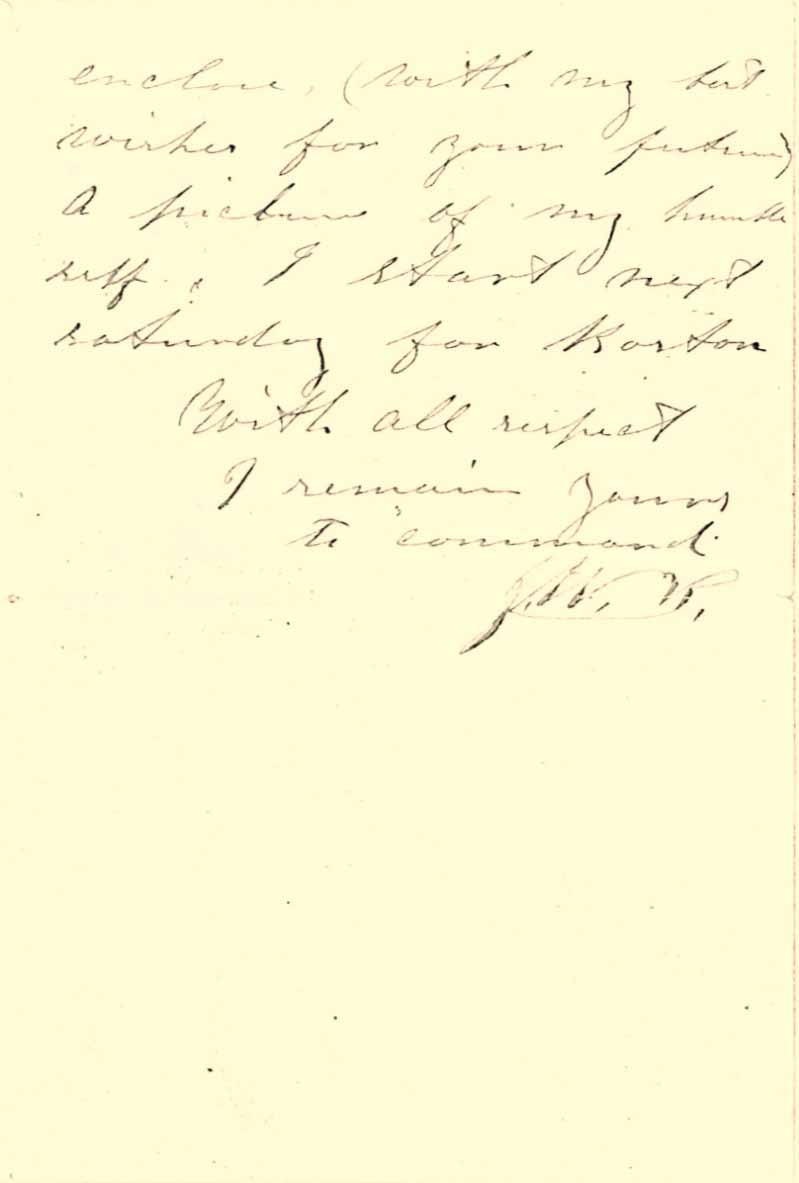 enclose, (with my best
wishes for your future)
A picture of my humble
self. I start next
saturday for
With all respect
I remain yours
to command
J.W. W.